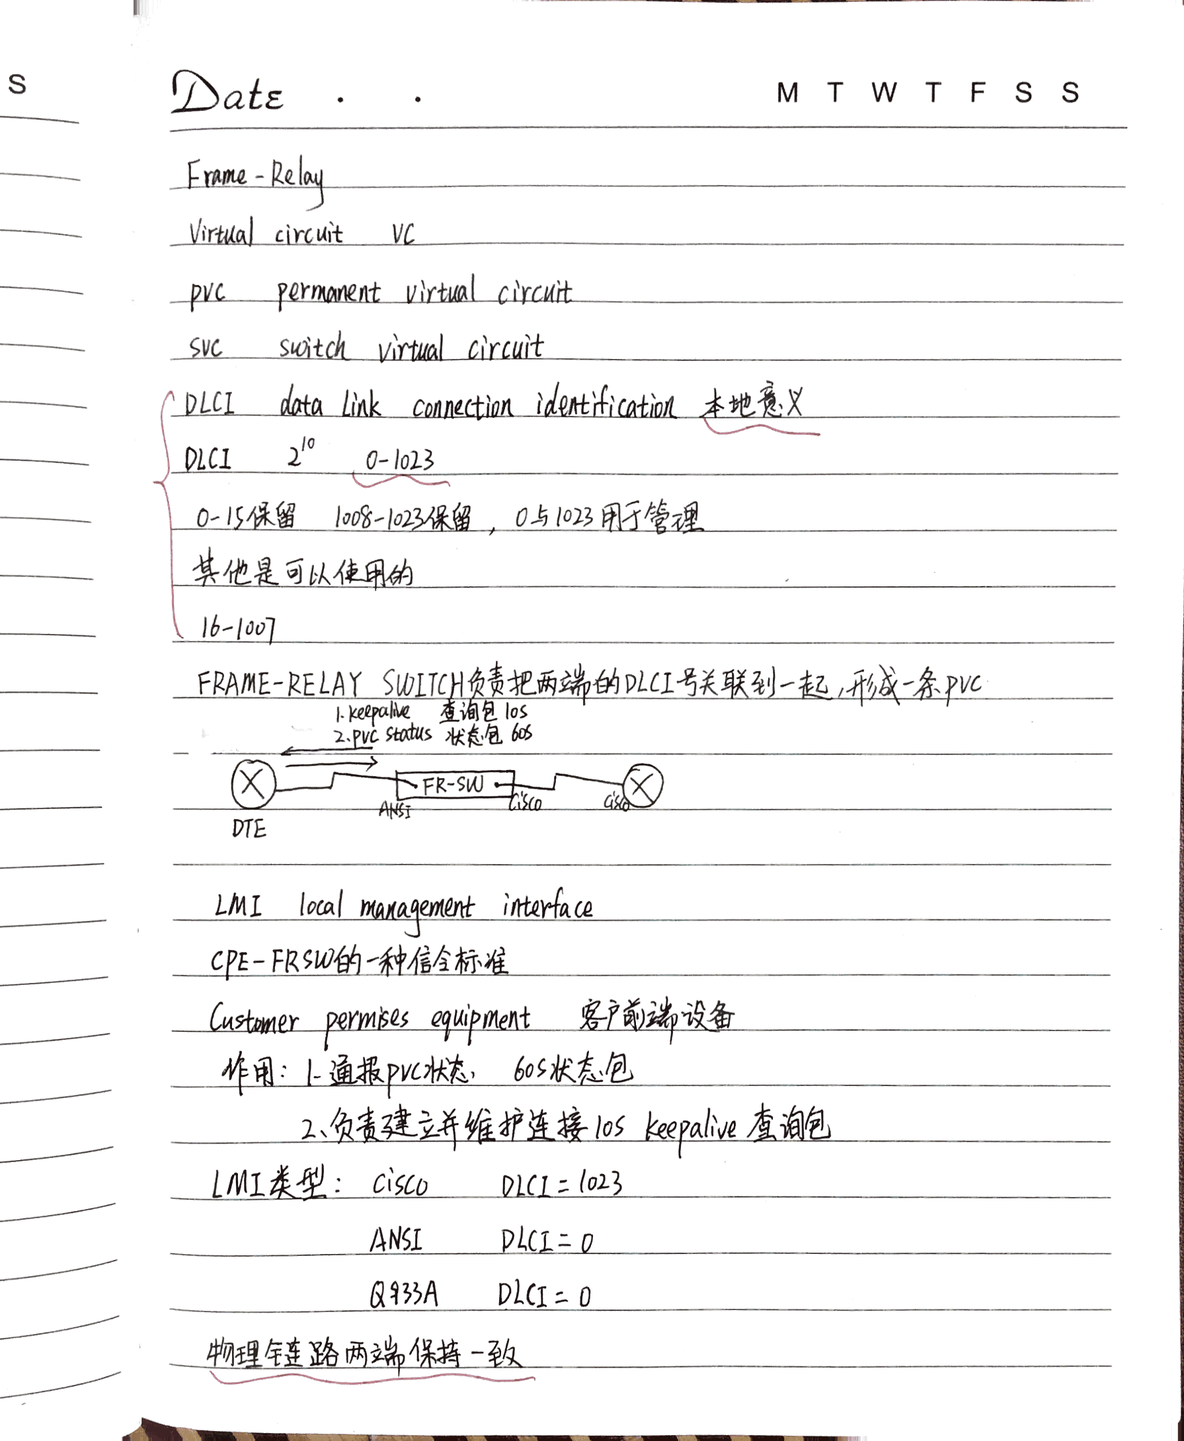 S
Date . .    M T W T F S S
Frame-Relay
Virtual circuit VC
pvc permanent virtual circuit
svc switch virtual circuit
DLCI data link connection identification 本地意义
DLCI 2^10 0-1023
0-15保留 1008-1023保留，0与1023用于管理
其他是可以使用的
16-1007
FRAME-RELAY SWITCH负责把两端的DLCI号关联到一起,形成一条pvc
1.keepalive 查询包 10s
2.pvc status 状态包 60s
FR-SW
ANSI cisco cisco
DTE
LMI local management interface
CPE-FRSW的一种信令标准
Customer permises equipment 客户前端设备
作用: 1.通报pvc状态, 60s状态包
2、负责建立并维护连接 10s keepalive 查询包
LMI类型: cisco DLCI=1023
ANSI DLCI=0
Q933A DLCI=0
物理链路两端保持一致